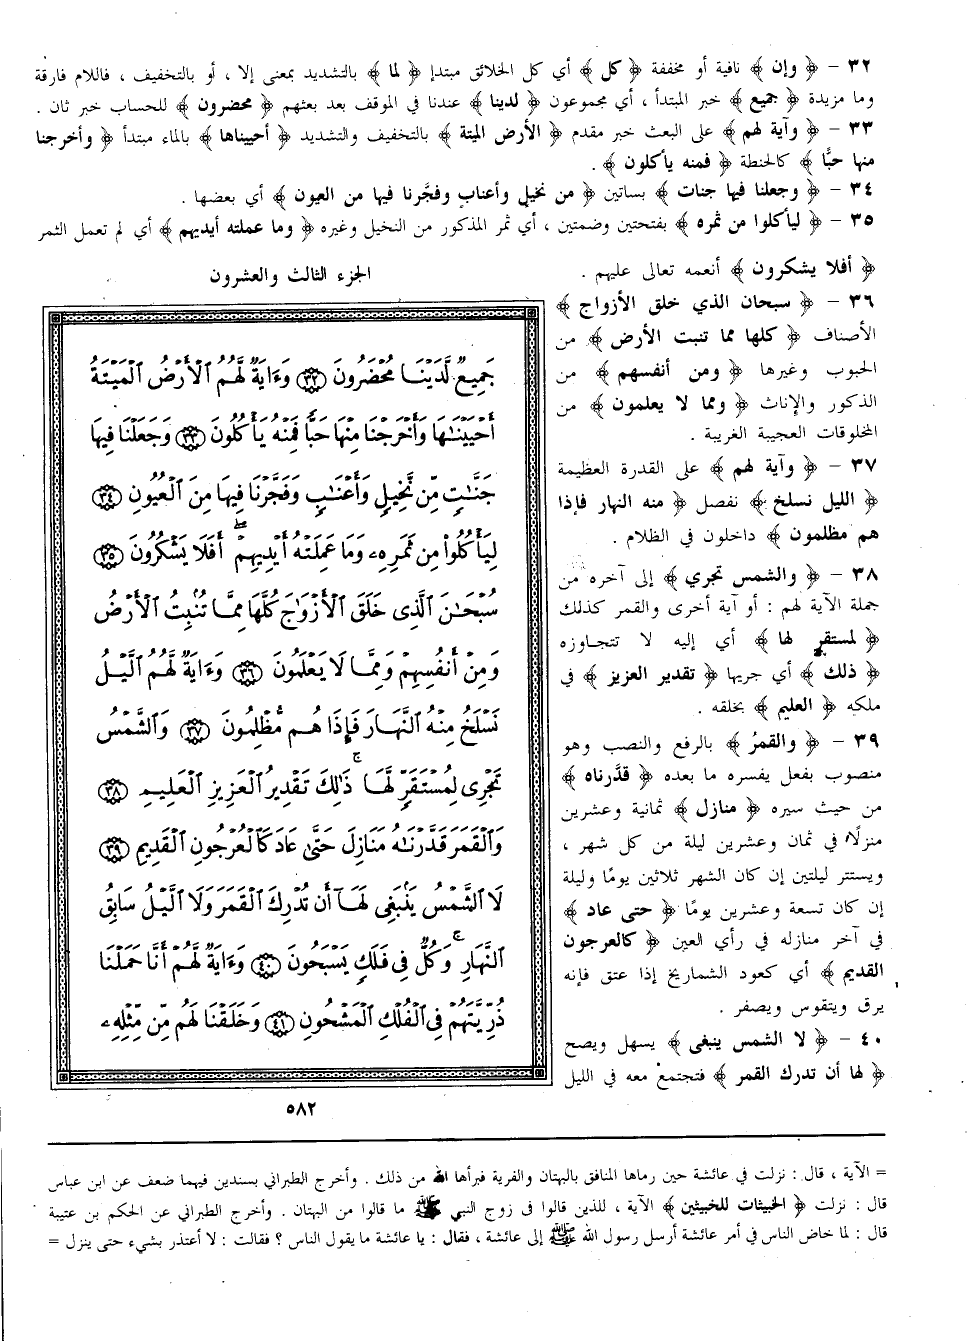 ٣٢ - ﴿ وإن ﴾ نافية أو مخففة ﴿ كل ﴾ أي كل الخلائق مبتدإ ﴿ لما ﴾ بالتشديد بمعنى إلا ، أو بالتخفيف ، فاللام فارقة
وما مزيدة ﴿ جميع ﴾ خبر المبتدأ ، أي مجموعون ﴿ لدينا ﴾ عندنا في الموقف بعد بعثهم ﴿ محضرون ﴾ للحساب خبر ثان .
٣٣ - ﴿ وآية لهم ﴾ على البعث خبر مقدم ﴿ الأرض الميتة ﴾ بالتخفيف والتشديد ﴿ أحييناها ﴾ بالماء مبتدأ ﴿ وأخرجنا
منها حبًّا ﴾ كالحنطة ﴿ فمنه يأكلون ﴾ .
٣٤ - ﴿ وجعلنا فيها جنات ﴾ بساتين ﴿ من نخيل وأعناب وفجَّرنا فيها من العيون ﴾ أي بعضها .
٣٥ - ﴿ ليأكلوا من ثمره ﴾ بفتحتين وضمتين ، أي ثمر المذكور من النخيل وغيره ﴿ وما عملته أيديهم ﴾ أي لم تعمل الثمر
﴿ أفلا يشكرون ﴾ أنعمه تعالى عليهم .
٣٦ - ﴿ سبحان الذي خلق الأزواج ﴾
الأصناف ﴿ كلها مما تنبت الأرض ﴾ من
الحبوب وغيرها ﴿ ومن أنفسهم ﴾ من
الذكور والإناث ﴿ ومما لا يعلمون ﴾ من
المخلوقات العجيبة الغريبة .
٣٧ - ﴿ وآية لهم ﴾ على القدرة العظيمة
﴿ الليل نسلخ ﴾ نفصل ﴿ منه النهار فإذا
هم مظلمون ﴾ داخلون في الظلام .
٣٨ - ﴿ والشمس تجري ﴾ إلى آخره من
جملة الآية لهم : أو آية أخرى والقمر كذلك
﴿ لمستقر لها ﴾ أي إليه لا تتجاوزه
﴿ ذلك ﴾ أي جريها ﴿ تقدير العزيز ﴾ في
ملكه ﴿ العليم ﴾ بخلقه .
٣٩ - ﴿ والقمرُ ﴾ بالرفع والنصب وهو
منصوب بفعل يفسره ما بعده ﴿ قدَّرناه ﴾
من حيث سيره ﴿ منازل ﴾ ثمانية وعشرين
منزلًا في ثمان وعشرين ليلة من كل شهر ،
ويستتر ليلتين إن كان الشهر ثلاثين يومًا وليلة
إن كان تسعة وعشرين يومًا ﴿ حتى عاد ﴾
في آخر منازله في رأي العين ﴿ كالعرجون
القديم ﴾ أي كعود الشماريخ إذا عتق فإنه
يرق ويتقوس ويصفر .
٤٠ - ﴿ لا الشمس ينبغى ﴾ يسهل ويصح
﴿ لها أن تدرك القمر ﴾ فتجتمع معه في الليل
الجزء الثالث والعشرون
جَمِيعٌ لَّدَيْنَا مُحْضَرُونَ ٣٢ وَءَايَةٌ لَّهُمُ ٱلْأَرْضُ ٱلْمَيْتَةُ
أَحْيَيْنَٰهَا وَأَخْرَجْنَا مِنْهَا حَبًّا فَمِنْهُ يَأْكُلُونَ ٣٣ وَجَعَلْنَا فِيهَا
جَنَّٰتٍ مِّن نَّخِيلٍ وَأَعْنَٰبٍ وَفَجَّرْنَا فِيهَا مِنَ ٱلْعُيُونِ ٣٤
لِيَأْكُلُوا۟ مِن ثَمَرِهِۦ وَمَا عَمِلَتْهُ أَيْدِيهِمْ ۖ أَفَلَا يَشْكُرُونَ ٣٥
سُبْحَٰنَ ٱلَّذِى خَلَقَ ٱلْأَزْوَٰجَ كُلَّهَا مِمَّا تُنۢبِتُ ٱلْأَرْضُ
وَمِنْ أَنفُسِهِمْ وَمِمَّا لَا يَعْلَمُونَ ٣٦ وَءَايَةٌ لَّهُمُ ٱلَّيْلُ
نَسْلَخُ مِنْهُ ٱلنَّهَارَ فَإِذَا هُم مُّظْلِمُونَ ٣٧ وَٱلشَّمْسُ
تَجْرِى لِمُسْتَقَرٍّ لَّهَا ۚ ذَٰلِكَ تَقْدِيرُ ٱلْعَزِيزِ ٱلْعَلِيمِ ٣٨
وَٱلْقَمَرَ قَدَّرْنَٰهُ مَنَازِلَ حَتَّىٰ عَادَ كَٱلْعُرْجُونِ ٱلْقَدِيمِ ٣٩
لَا ٱلشَّمْسُ يَنۢبَغِى لَهَآ أَن تُدْرِكَ ٱلْقَمَرَ وَلَا ٱلَّيْلُ سَابِقُ
ٱلنَّهَارِ ۚ وَكُلٌّ فِى فَلَكٍ يَسْبَحُونَ ٤٠ وَءَايَةٌ لَّهُمْ أَنَّا حَمَلْنَا
ذُرِّيَّتَهُمْ فِى ٱلْفُلْكِ ٱلْمَشْحُونِ ٤١ وَخَلَقْنَا لَهُم مِّن مِّثْلِهِۦ
٥٨٢
= الآية ، قال : نزلت في عائشة حين رماها المنافق بالبهتان والفرية فبرأها الله من ذلك . وأخرج الطبراني بسندين فيهما ضعف عن ابن عباس
قال : نزلت ﴿ الخبيثات للخبيثين ﴾ الآية ، للذين قالوا فى زوج النبي ﷺ ما قالوا من البهتان . وأخرج الطبراني عن الحكم بن عتيبة
قال : لما خاض الناس في أمر عائشة أرسل رسول الله ﷺ إلى عائشة ، فقال : يا عائشة ما يقول الناس ؟ فقالت : لا أعتذر بشيء حتى ينزل =